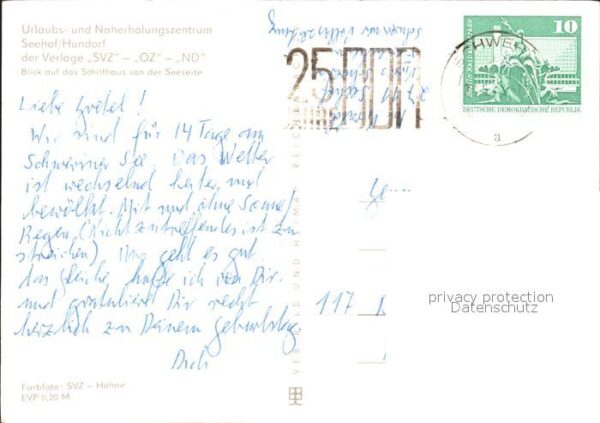 Urlaubs- und Naherholungszentrum
Seehof/Hundorf
der Verlage „SVZ“ – „OZ“ – „ND“
Blick auf das Schilfhaus von der Seeseite
Liebe Gretel!
Wir sind für 14 Tage am
Schweriner See. Das Wetter
ist wechselnd heiter und
bewölkt. Mit und ohne Sonne/
Regen (Nichtzutreffendes ist zu
streichen) Uns geht es gut
das gleiche hoffe ich von Dir
und gratuliere Dir recht
herzlich zu Deinem Geburtstag.
Farbfoto: SVZ – Höhne
EVP 0,20 M
VEB BILD UND HEIMAT REIC
25 DDR
Schweriner Volkszeitung
SCHWE
a
10
Berlin
DEUTSCHE DEMOKRATISCHE REPUBLIK
117
privacy protection
Datenschutz